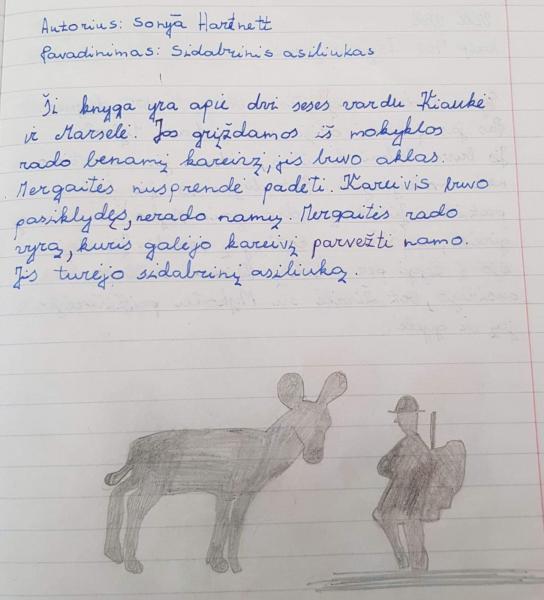 Autorius: Sonya Hartnett
Pavadinimas: Sidabrinis asiliukas
Ši knyga yra apie dvi seses vardu Kiaukė
ir Marselė. Jos grįždamos iš mokyklos
rado benamį kareivį, jis buvo aklas.
Mergaitės nusprendė padėti. Kareivis buvo
pasiklydęs, nerado namų. Mergaitės rado
vyrą, kuris galėjo kareivį parvežti namo.
Jis turėjo sidabrinį asiliuką.